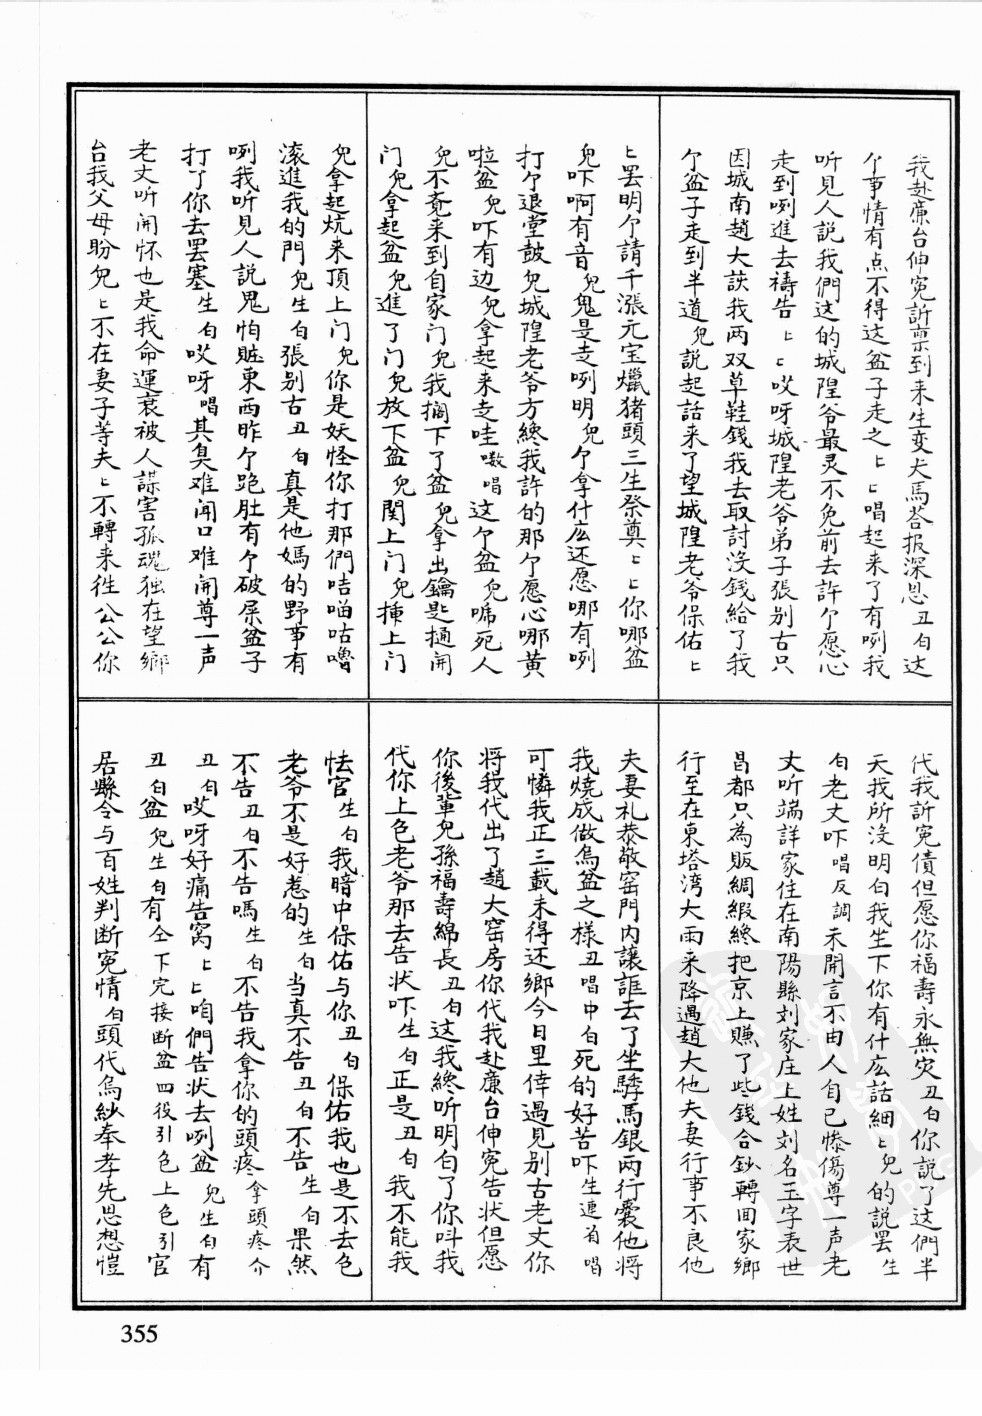 我赴廉台伸冤訢禀到来生变犬馬荅报深恩丑白这
亇事情有点不得达盆子走之〻〻唱起来了有咧我
听見人説我們这的城隍爷最灵不免前去許亇愿心
走到咧進去祷告〻〻哎呀城隍老爷弟子張别古只
因城南趙大該我两双草鞋錢我去取討没錢給了我
亇盆子走到半道皃説起話来了望城隍老爷保佑〻
〻罢明亇請千漲元宝爉猪頭三生祭奠〻〻你哪盆
皃吓啊有音皃鬼是走咧明皃亇拿什庅还愿哪有咧
打亇退堂鼓皃城隍老爷方終我許的那亇愿心哪黄
啦盆皃吓有边皃拿起来走哇嗷唱这亇盆皃嚇死人
皃不竟来到自家门皃我搁下了盆皃拿出鑰匙捅開
门皃拿起盆皃進了门皃放下盆皃関上门皃揀上门
皃拿起炕来頂上门皃你是妖怪你打那們咭喵咕嚕
滚進我的門皃生白張别古丑白真是他媽的野事有
咧我听見人説鬼怕賍東西昨亇跑肚有亇破屎盆子
打了你去罢塞生白哎呀唱其臭难聞口难開尊一声
老丈听開怀也是我命運衰被人謀害孤魂独在望鄉
台我父母盼皃〻不在妻子等夫〻不轉来徃公公你
代我訢冤債但愿你福壽永無灾丑白你説了这們半
天我所没明白我坐下你有什庅話細〻皃的説罢生
白老丈吓唱反調未開言不由人自已惨傷尊一声老
丈听端詳家住在南陽縣刘家庄上姓刘名玉字表世
昌都只為販綢緞終把京上賺了些錢合鈔轉回家鄉
行至在東塔湾大雨来降遇趙大他夫妻行事不良他
夫妻礼恭敬窑門内讓誆去了坐騎馬銀两行囊他将
我燒成做烏盆之様丑唱中白死的好苦吓生連肓唱
可憐我正三載未得还鄉今日里倖遇見别古老丈你
将我代出了趙大窑房你代我赴廉台伸冤告状但愿
你後輩皃孫福壽綿長丑白这我終听明白了你呌我
代你上色老爷那去告状吓生白正是丑白我不能我
怯官生白我暗中保佑与你丑白保佑我也是不去色
老爷不是好惹的生白当真不告丑白不告生白果然
不告丑白不告嗎生白不告我拿你的頭疼拿頭疼介
丑白哎呀好痛告窩〻咱們告状去咧盆皃生白有
丑白盆皃生白有仝下完接断盆四役引色上色引官
居縣令与百姓判断冤情白頭代烏紗奉孝先思想愷
355